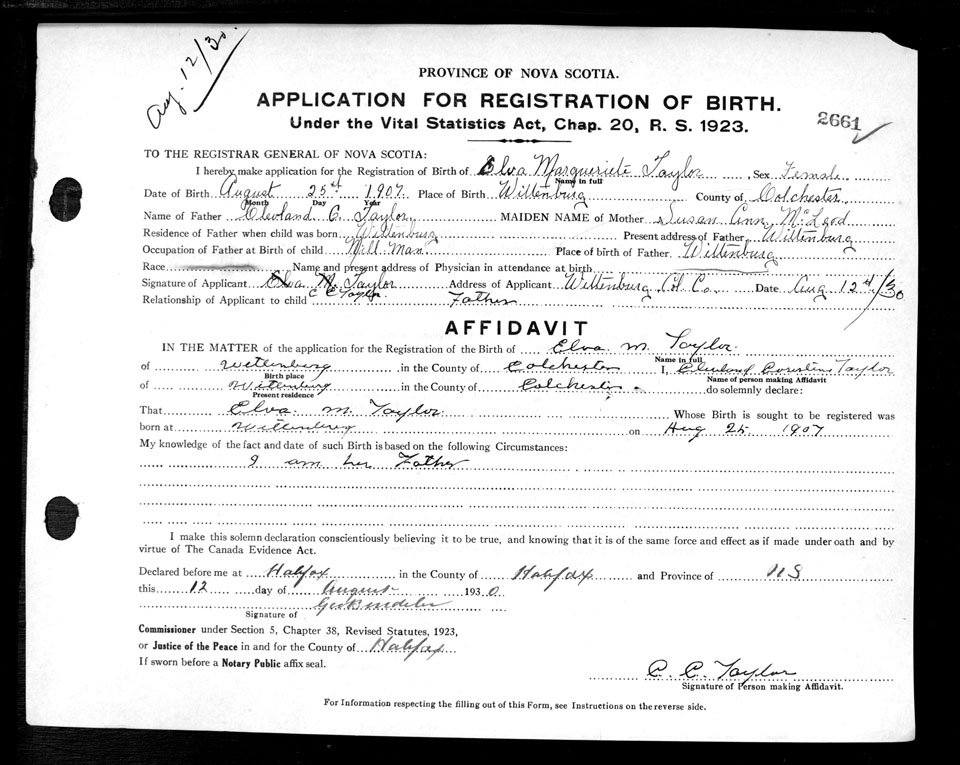 Aug. 12/30.
PROVINCE OF NOVA SCOTIA.
APPLICATION FOR REGISTRATION OF BIRTH.
Under the Vital Statistics Act, Chap. 20, R. S. 1923.
2661
TO THE REGISTRAR GENERAL OF NOVA SCOTIA:
I hereby make application for the Registration of Birth of Elva Marguriete Taylor Sex Female
Name in full
Date of Birth August 25th 1907 Place of Birth Wittenburg County of Colchester
Month Day Year
Name of Father Cleveland C. Taylor MAIDEN NAME of Mother Susan Ann McLeod
Residence of Father when child was born Wittenburg Present address of Father Wittenburg
Occupation of Father at Birth of child Mill Man Place of birth of Father Wittenburg
Race Name and present address of Physician in attendance at birth
Signature of Applicant Elva M. Taylor Address of Applicant Wittenburg Col. Co. Date Aug 12th/30
C C Taylor
Relationship of Applicant to child Father
AFFIDAVIT
IN THE MATTER of the application for the Registration of the Birth of Elva M. Taylor
Name in full
of Wittenberg in the County of Colchester I, Taylor
Birth place Name of person making Affidavit
of Wittenburg in the County of Colchester do solemnly declare:
Present residence
That Elva M. Taylor Whose Birth is sought to be registered was
born at Wittenberg on Aug 25 1907
My knowledge of the fact and date of such Birth is based on the following Circumstances:
I am her Father
I make this solemn declaration conscientiously believing it to be true, and knowing that it is of the same force and effect as if made under oath and by
virtue of The Canada Evidence Act.
Declared before me at Halifax in the County of Halifax and Province of NS
this 12 day of August 1930
Signature of
Commissioner under Section 5, Chapter 38, Revised Statutes, 1923,
or Justice of the Peace in and for the County of Halifax
If sworn before a Notary Public affix seal.
C. C. Taylor
Signature of Person making Affidavit.
For Information respecting the filling out of this Form, see Instructions on the reverse side.